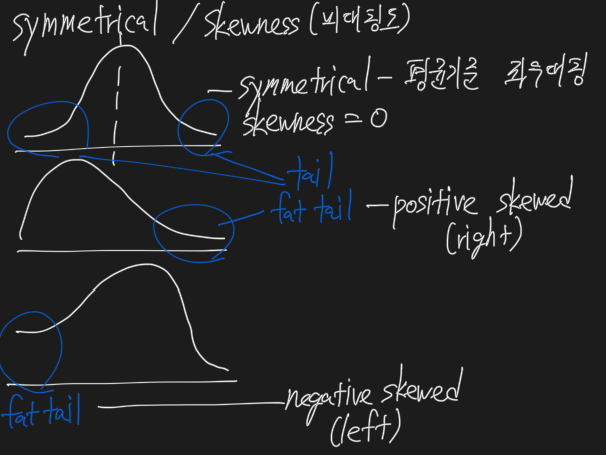 symmetrical / skewness (비대칭도)
symmetrical - 평균기준 좌우대칭
skewness = 0
tail
fat tail - positive skewed
(right)
fat tail
negative skewed
(left)